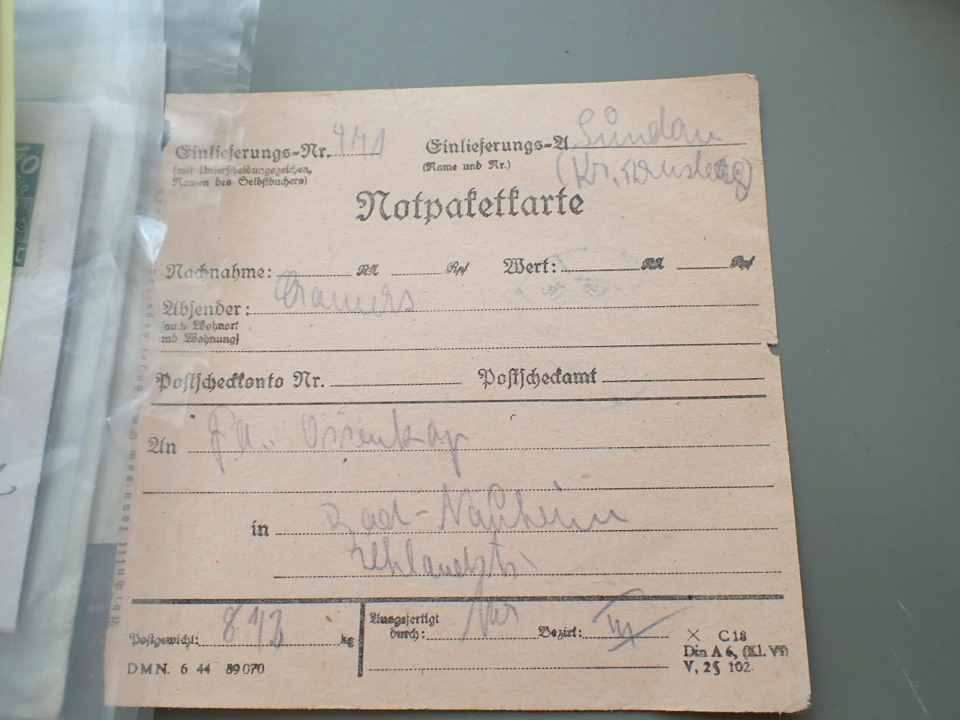 Einlieferungs-Nr. 441 Einlieferungs-A Sundau
(mit Unterscheidungszeichen, (Name und Nr.) (Kr.
Namen des Selbstbuchers)
Notpaketkarte
Nachnahme: RM Rpf Wert: RM Rpf
Absender: Cramers
(auch Wohnort
und Wohnung)
Postscheckkonto Nr. Postscheckamt
An Fa. Ossenkop
in Bad-Nauheim
Uhlandstr.
Postgewicht: kg Ausgefertigt
durch: Bezirk:
DMN. 6 44 89070
× C 18
Din A 6, (Kl. VI)
V, 2 § 102